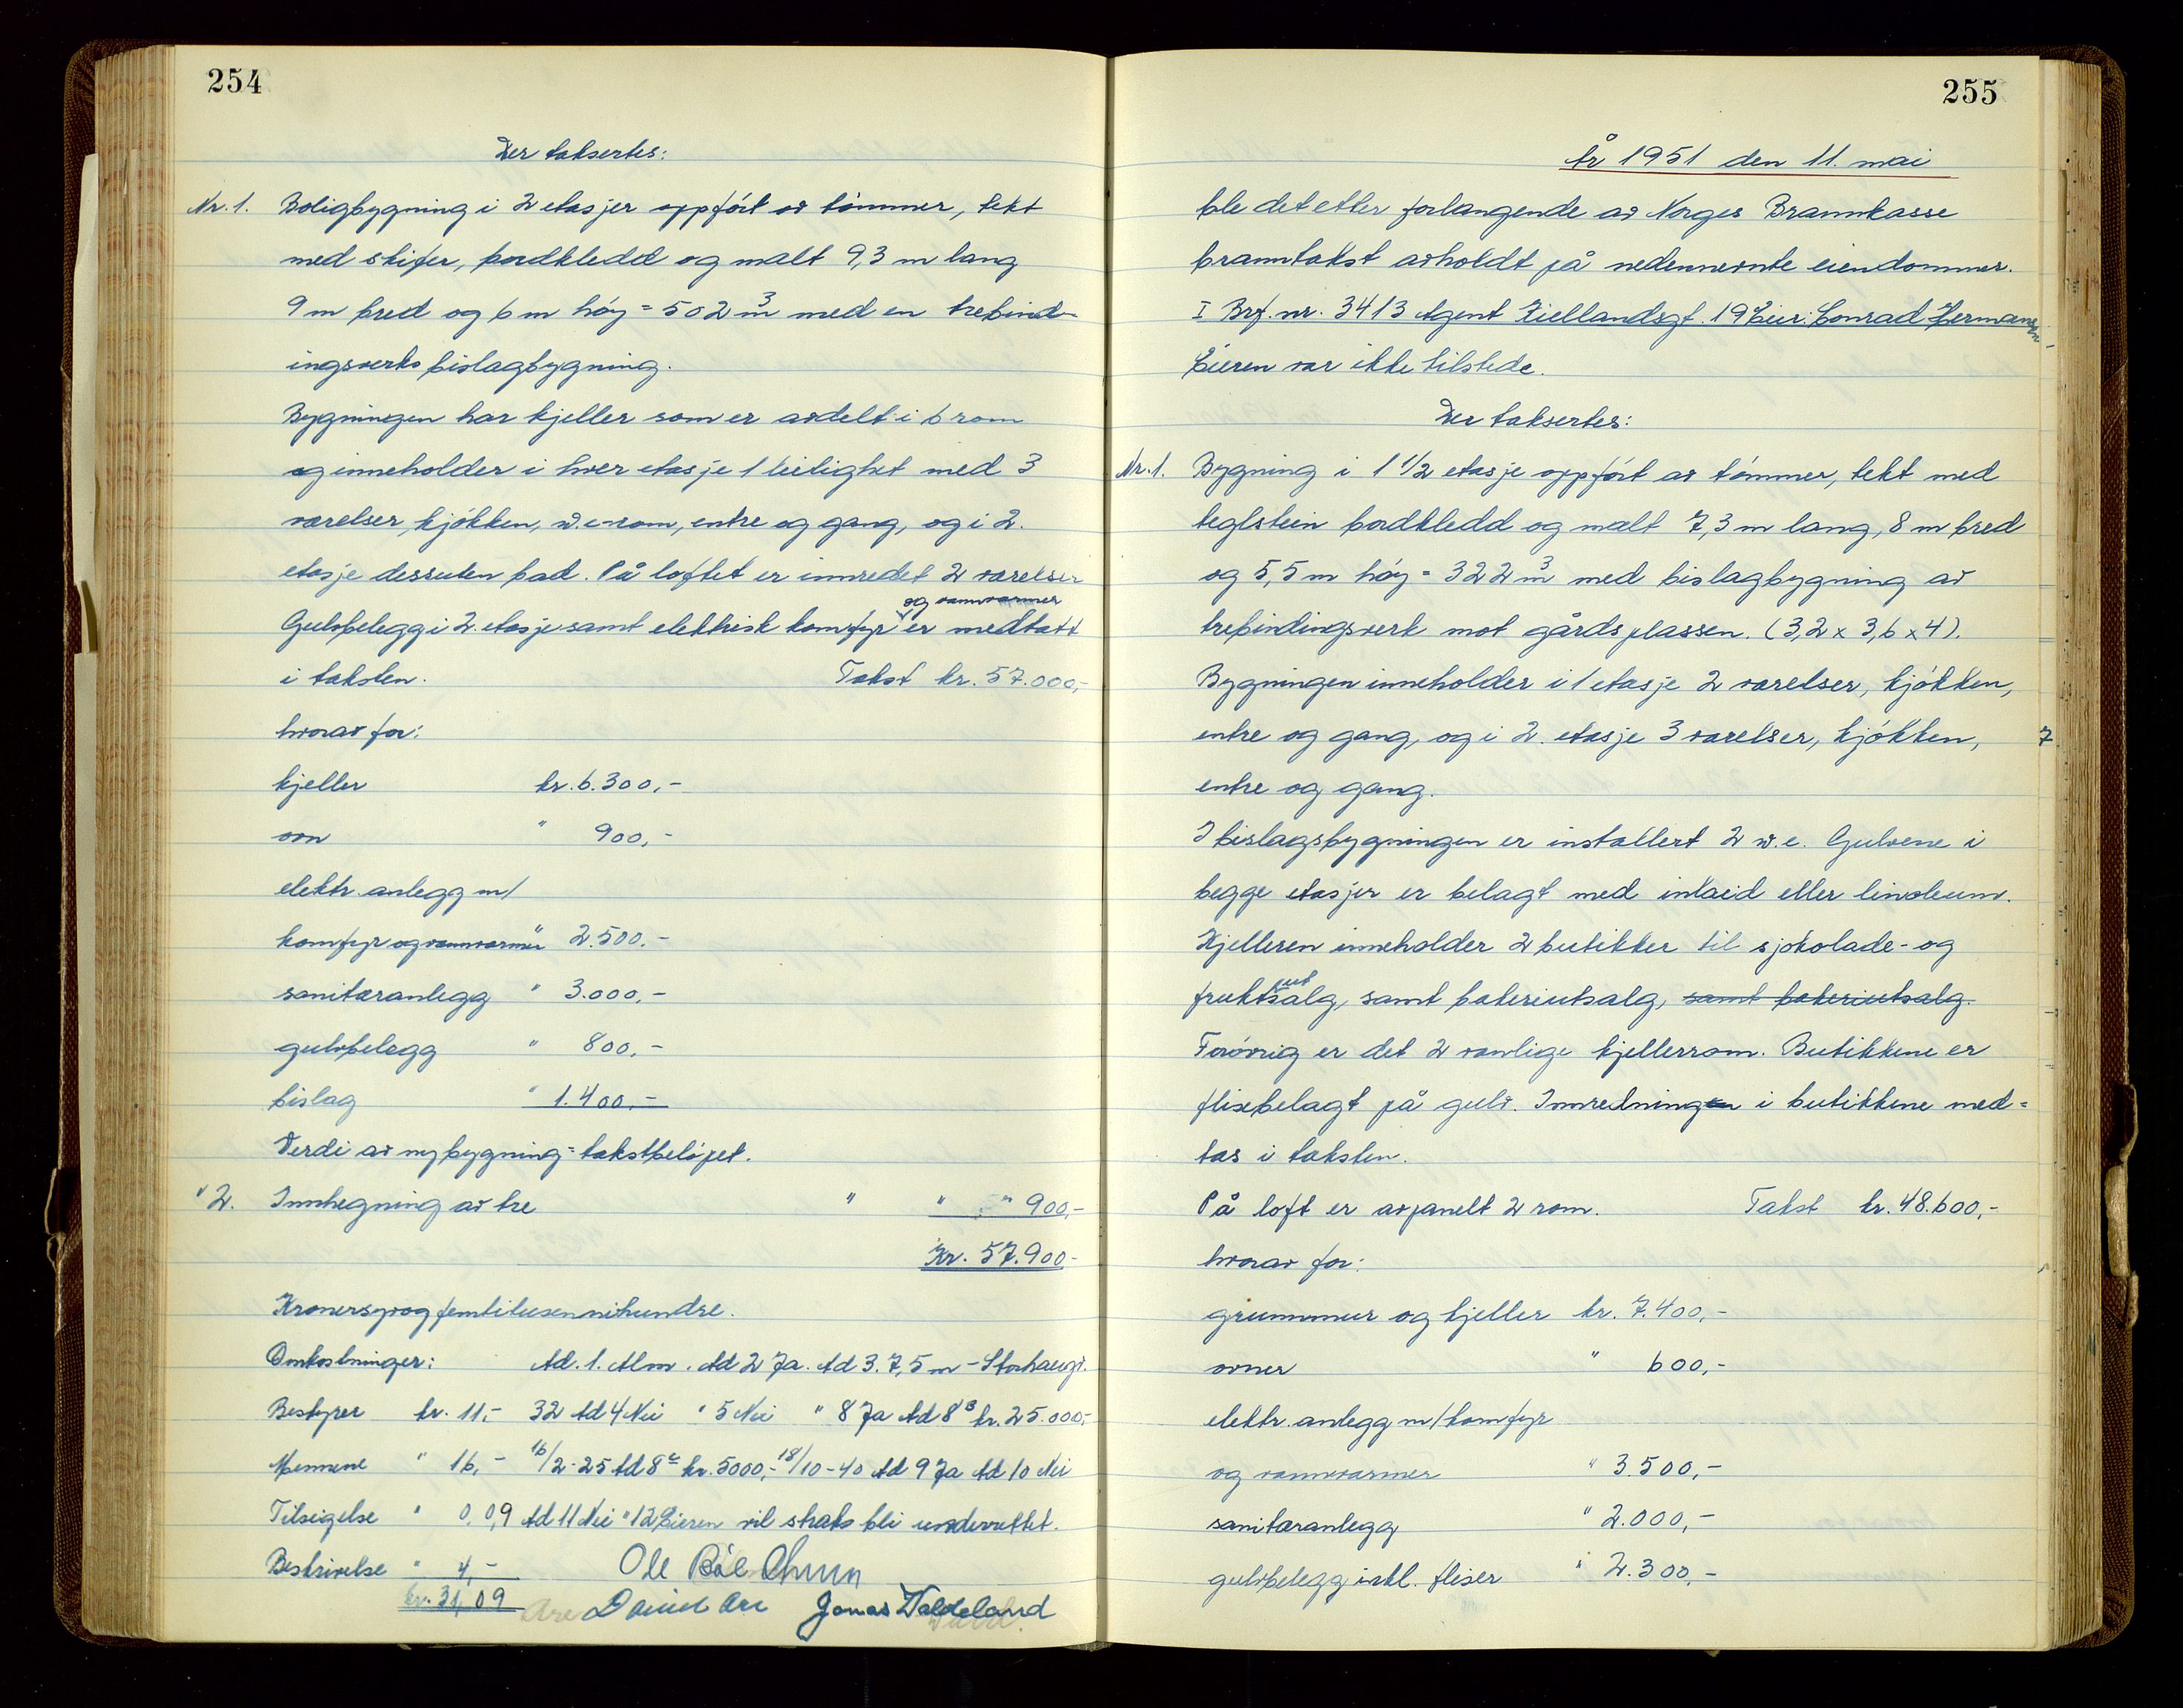 254
Der taksertes:
Nr. 1. Boligbygning i 2 etasjer oppført av tømmer, tekt
med skifer, bordkledd og malt 9,3 m lang
9 m bred og 6 m høy = 502 m³ med en trebind-
ingsverks bislagbygning.
Bygningen har kjeller som er avdelt i 6 rom
og inneholder i hver etasje 1 leilighet med 3
værelser, kjøkken, w.c-rom, entre og gang, og i 2.
etasje dessuten bad. På loftet er innredet 2 værelser
og vannvarmer
Gulvbelegg i 2. etasje samt elektrisk komfyr er medtatt
i taksten. Takst kr. 57.000,-
hvorav for:
kjeller kr. 6.300,-
ovn " 900,-
elektr. anlegg m/
komfyr og vannvarmer " 2.500.-
sanitæranlegg " 3.000,-
gulvbelegg " 800,-
bislag " 1.400,-
Verdi av nybygning = takstbeløpet.
" 2. Innhegning av tre " " " 900,-
Kr. 57.900-
Kroner syvogfemtitusennihundre.
Omkostninger: Ad. 1. Alm. Ad 2 Ja. Ad 3. 7,5 m - Storhaugv.
Bestyrer kr. 11,- 32 Ad 4 Nei " 5 Nei " 8 Ja Ad 8ᴮ kr. 25.000,-
Mennene " 16,- 16/2-25 Ad 8ᶜ kr. 5000,- 18/10-40 Ad 9 Ja Ad 10 Nei
Tilseigelse " 0,09 Ad 11 Nei " 12 Eieren vil straks bli underrettet.
Beskrivelse " 4,- Ole
kr. 31,09 Daniel Are Jonas Waldeland
255
År 1951 den 11. mai
ble det etter forlangende av Norges Brannkasse
branntakst avholdt på nedennevnte eiendommer.
I Brf. nr. 3413 Agent Kiellandsgt. 19 Eier: Conrad Hermansen
Eieren var ikke tilstede.
Der taksertes:
Nr. 1. Bygning i 1 1/2 etasje oppført av tømmer, tekt med
teglstein bordkledd og malt 7,3 m lang, 8 m bred
og 5,5 m høy = 322 m³ med bislagbygning av
trebindingsverk mot gårdsplassen. (3,2 x 3,6 x 4).
Bygningen inneholder i 1 etasje 2 værelser, kjøkken,
entre og gang, og i 2. etasje 3 værelser, kjøkken,
entre og gang.
I bislagsbygningen er installert 2 w.c. Gulvene i
begge etasjer er belagt med inlaid eller linoleum.
Kjelleren inneholder 2 butikker til sjokolade- og
fruktutsalg, samt bakeriutsalg, samt bakeriutsalg.
Forøvrig er det 2 vanlige kjellerrom. Butikkene er
flisebelagt på gulv. Innredningen i butikkene med=
tas i taksten.
På loft er avpanelt 2 rom. Takst kr. 48.600,-
hvorav for:
grunnmur og kjeller kr. 7.400,-
ovner " 600,-
elektr. anlegg m/komfyr
og vannvarmer " 3.500,-
sanitæranlegg " 2.000,-
gulvbelegg inkl. fliser " 2.300,-